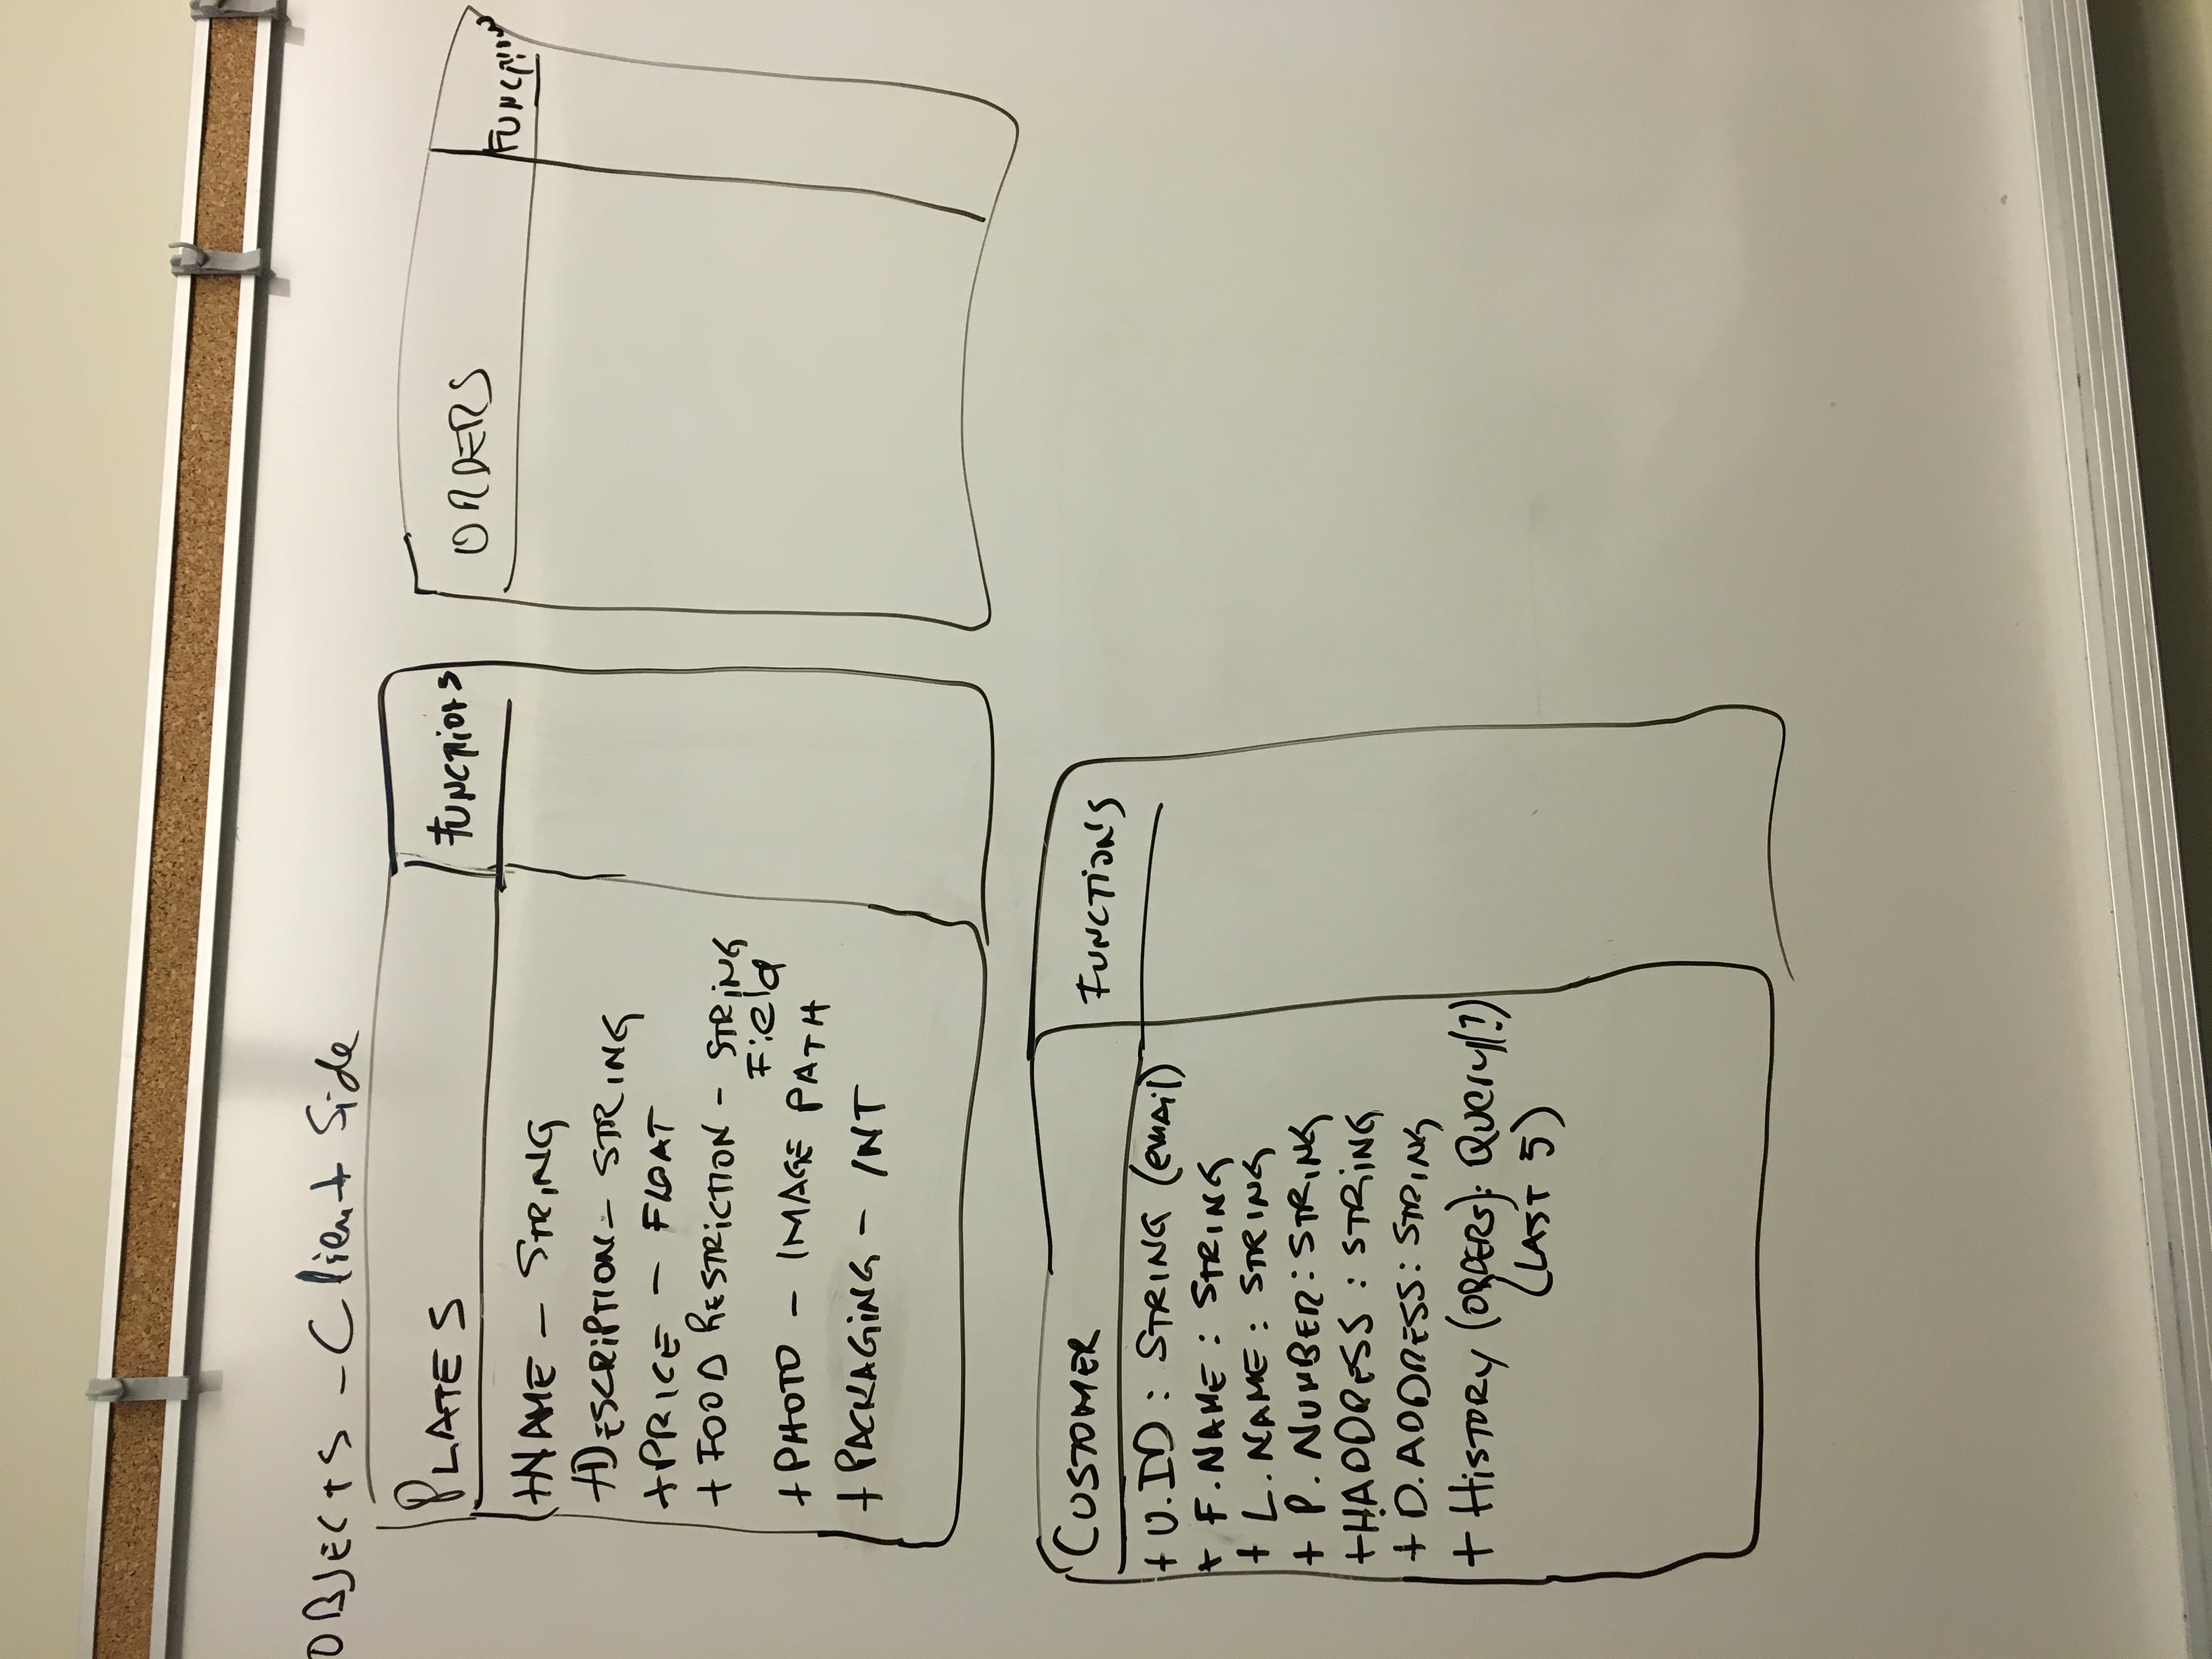 OBJECTS - Client Side
PLATES
FUNCTIONS
+NAME - STRING
+DESCRIPTION - STRING
+PRICE - FLOAT
+ FOOD RESTRICTION - STRING
Field
+ PHOTO - IMAGE PATH
+ PACKAGING - INT
ORDERS
FUNCTION
CUSTOMER
FUNCTIONS
+ U.ID : STRING (email)
+ F.NAME : STRING
+ L.NAME : STRING
+ P.NUMBER : STRING
+ H.ADDRESS : STRING
+ D.ADDRESS : STRING
+ HISTORY (ORDERS): QUERY(?)
(LAST 5)